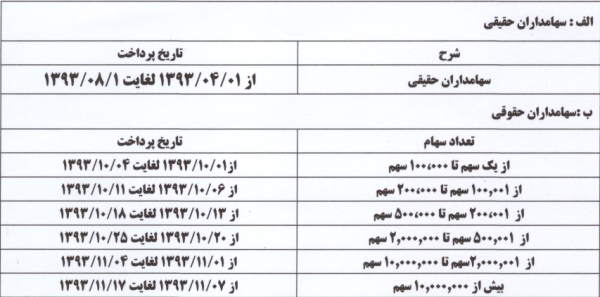 الف : سهامداران حقیقی
شرح تاریخ پرداخت
سهامداران حقیقی از ۱۳۹۳/۰۴/۰۱ لغایت ۱۳۹۳/۰۸/۱
ب :سهامداران حقوقی
تعداد سهام تاریخ پرداخت
از یک سهم تا ۱۰۰،۰۰۰ سهم از۱۳۹۳/۱۰/۰۱ لغایت ۱۳۹۳/۱۰/۰۴
از ۱۰۰,۰۰۱ سهم تا ۲۰۰،۰۰۰ سهم از ۱۳۹۳/۱۰/۰۶ لغایت ۱۳۹۳/۱۰/۱۱
از ۲۰۰،۰۰۱ سهم تا ۵۰۰,۰۰۰ سهم از ۱۳۹۳/۱۰/۱۳ لغایت ۱۳۹۳/۱۰/۱۸
از ۵۰۰,۰۰۱ سهم تا ۲,۰۰۰,۰۰۰ سهم از ۱۳۹۳/۱۰/۲۰ لغایت ۱۳۹۳/۱۰/۲۵
از ۲,۰۰۰,۰۰۱سهم تا ۱۰,۰۰۰,۰۰۰ سهم از ۱۳۹۳/۱۱/۰۱ لغایت ۱۳۹۳/۱۱/۰۴
بیش از ۱۰,۰۰۰,۰۰۰ سهم از ۱۳۹۳/۱۱/۰۷ لغایت ۱۳۹۳/۱۱/۱۷